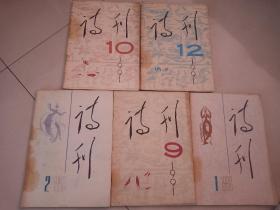 诗刊
10
1991
诗刊
12
1991
诗刊
2
诗刊
9
1991
诗刊
1